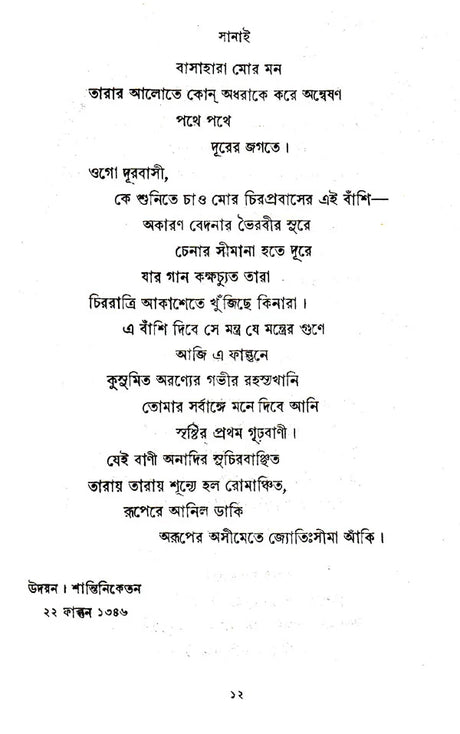 সানাই
বাসাহারা মোর মন
তারার আলোতে কোন্ অধরাকে করে অন্বেষণ
পথে পথে
দূরের জগতে।
ওগো দূরবাসী,
কে শুনিতে চাও মোর চিরপ্রবাসের এই বাঁশি—
অকারণ বেদনার ভৈরবীর সুরে
চেনার সীমানা হতে দূরে
যার গান কক্ষচ্যুত তারা
চিররাত্রি আকাশেতে খুঁজিছে কিনারা।
এ বাঁশি দিবে সে মন্ত্র যে মন্ত্রের গুণে
আজি এ ফাল্গুনে
কুসুমিত অরণ্যের গভীর রহস্যখানি
তোমার সর্বাঙ্গে মনে দিবে আনি
সৃষ্টির প্রথম গূঢ়বাণী।
যেই বাণী অনাদির সুচিরবাঞ্ছিত
তারায় তারায় শূন্যে হল রোমাঞ্চিত,
রূপেরে আনিল ডাকি
অরূপের অসীমেতে জ্যোতিঃসীমা আঁকি।
উদয়ন। শান্তিনিকেতন
২২ ফাল্গুন ১৩৪৬
১২